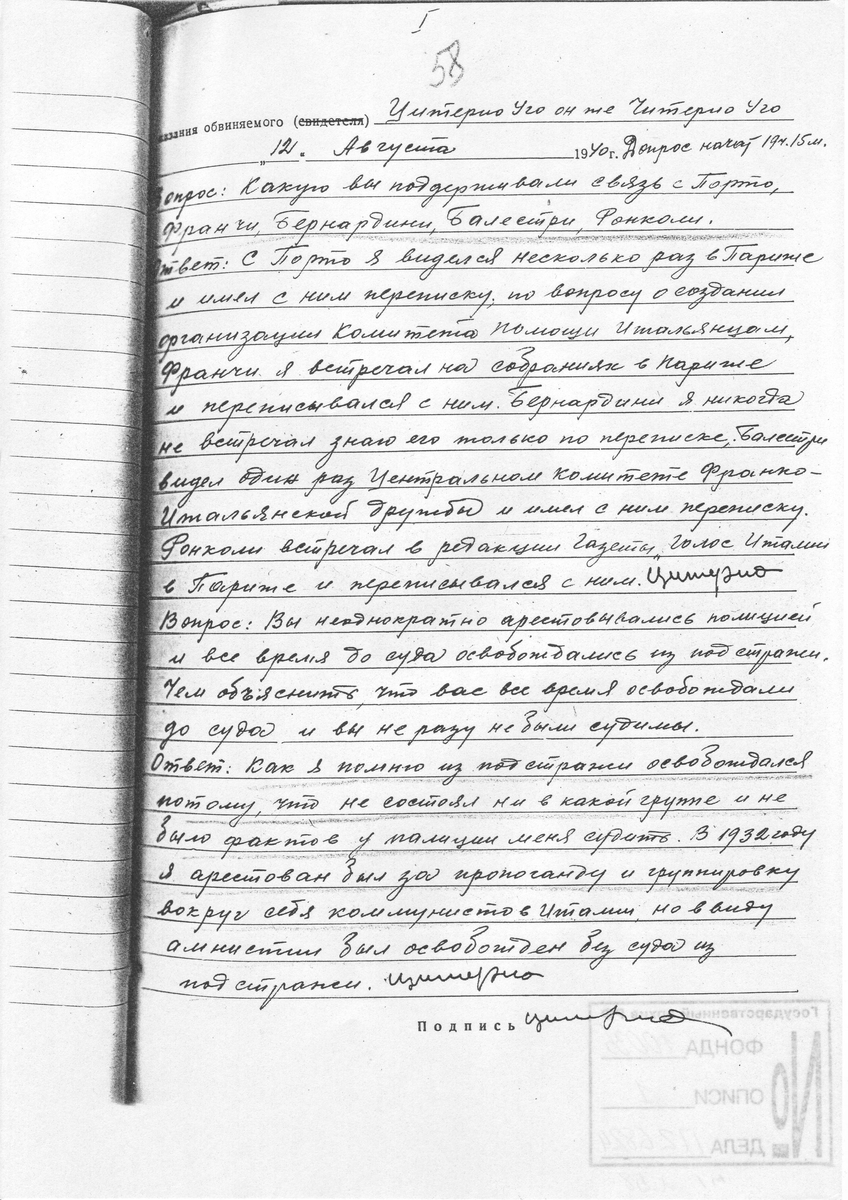 I
58
показания обвиняемого (свидетеля) Цитерио Уго он же Читерио Уго
„12“ Августа 1940 г. Допрос начат 19ч.15м.
Вопрос: Какую вы поддерживали связь с Порто,
Франчи, Бернардини, Балестри, Ронколи.
Ответ: С Порто я виделся несколько раз в Париже
и имел с ним переписку, по вопросу о создании
организации Комитета помощи Итальянцам,
Франчи я встречал на собраниях в Париже
и переписывался с ним. Бернардини я никогда
не встречал знаю его только по переписке, Балестри
видел один раз Центральном Комитете Франко-
Итальянской дружбы и имел с ним переписку.
Ронколи встречал в редакции Газеты „Голос Италии
в Париже и переписывался с ним. Цитерио
Вопрос: Вы неоднократно арестовывались полицией
и все время до суда освобождались из под стражи.
Чем объяснить, что вас все время освобождали
до суда и вы не разу не были судимы.
Ответ: Как я помню из под стражи освобождался
потому, что не состоял ни в какой группе и не
было фактов у палиции меня судить. В 1932 году
я арестован был за пропоганду и группировку
вокруг себя коммунистов Италии, но в виду
амнистии был освобожден без суда из
под стражи. Цитерио
Подпись Цитерио
Государственный
ФОНДА
ОПИСИ 1
ДЕЛА
№